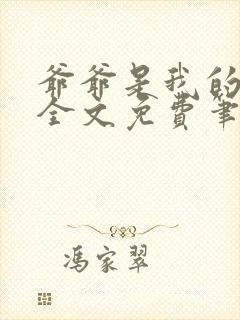 爷爷是我的
全文免费笔
冯家翠